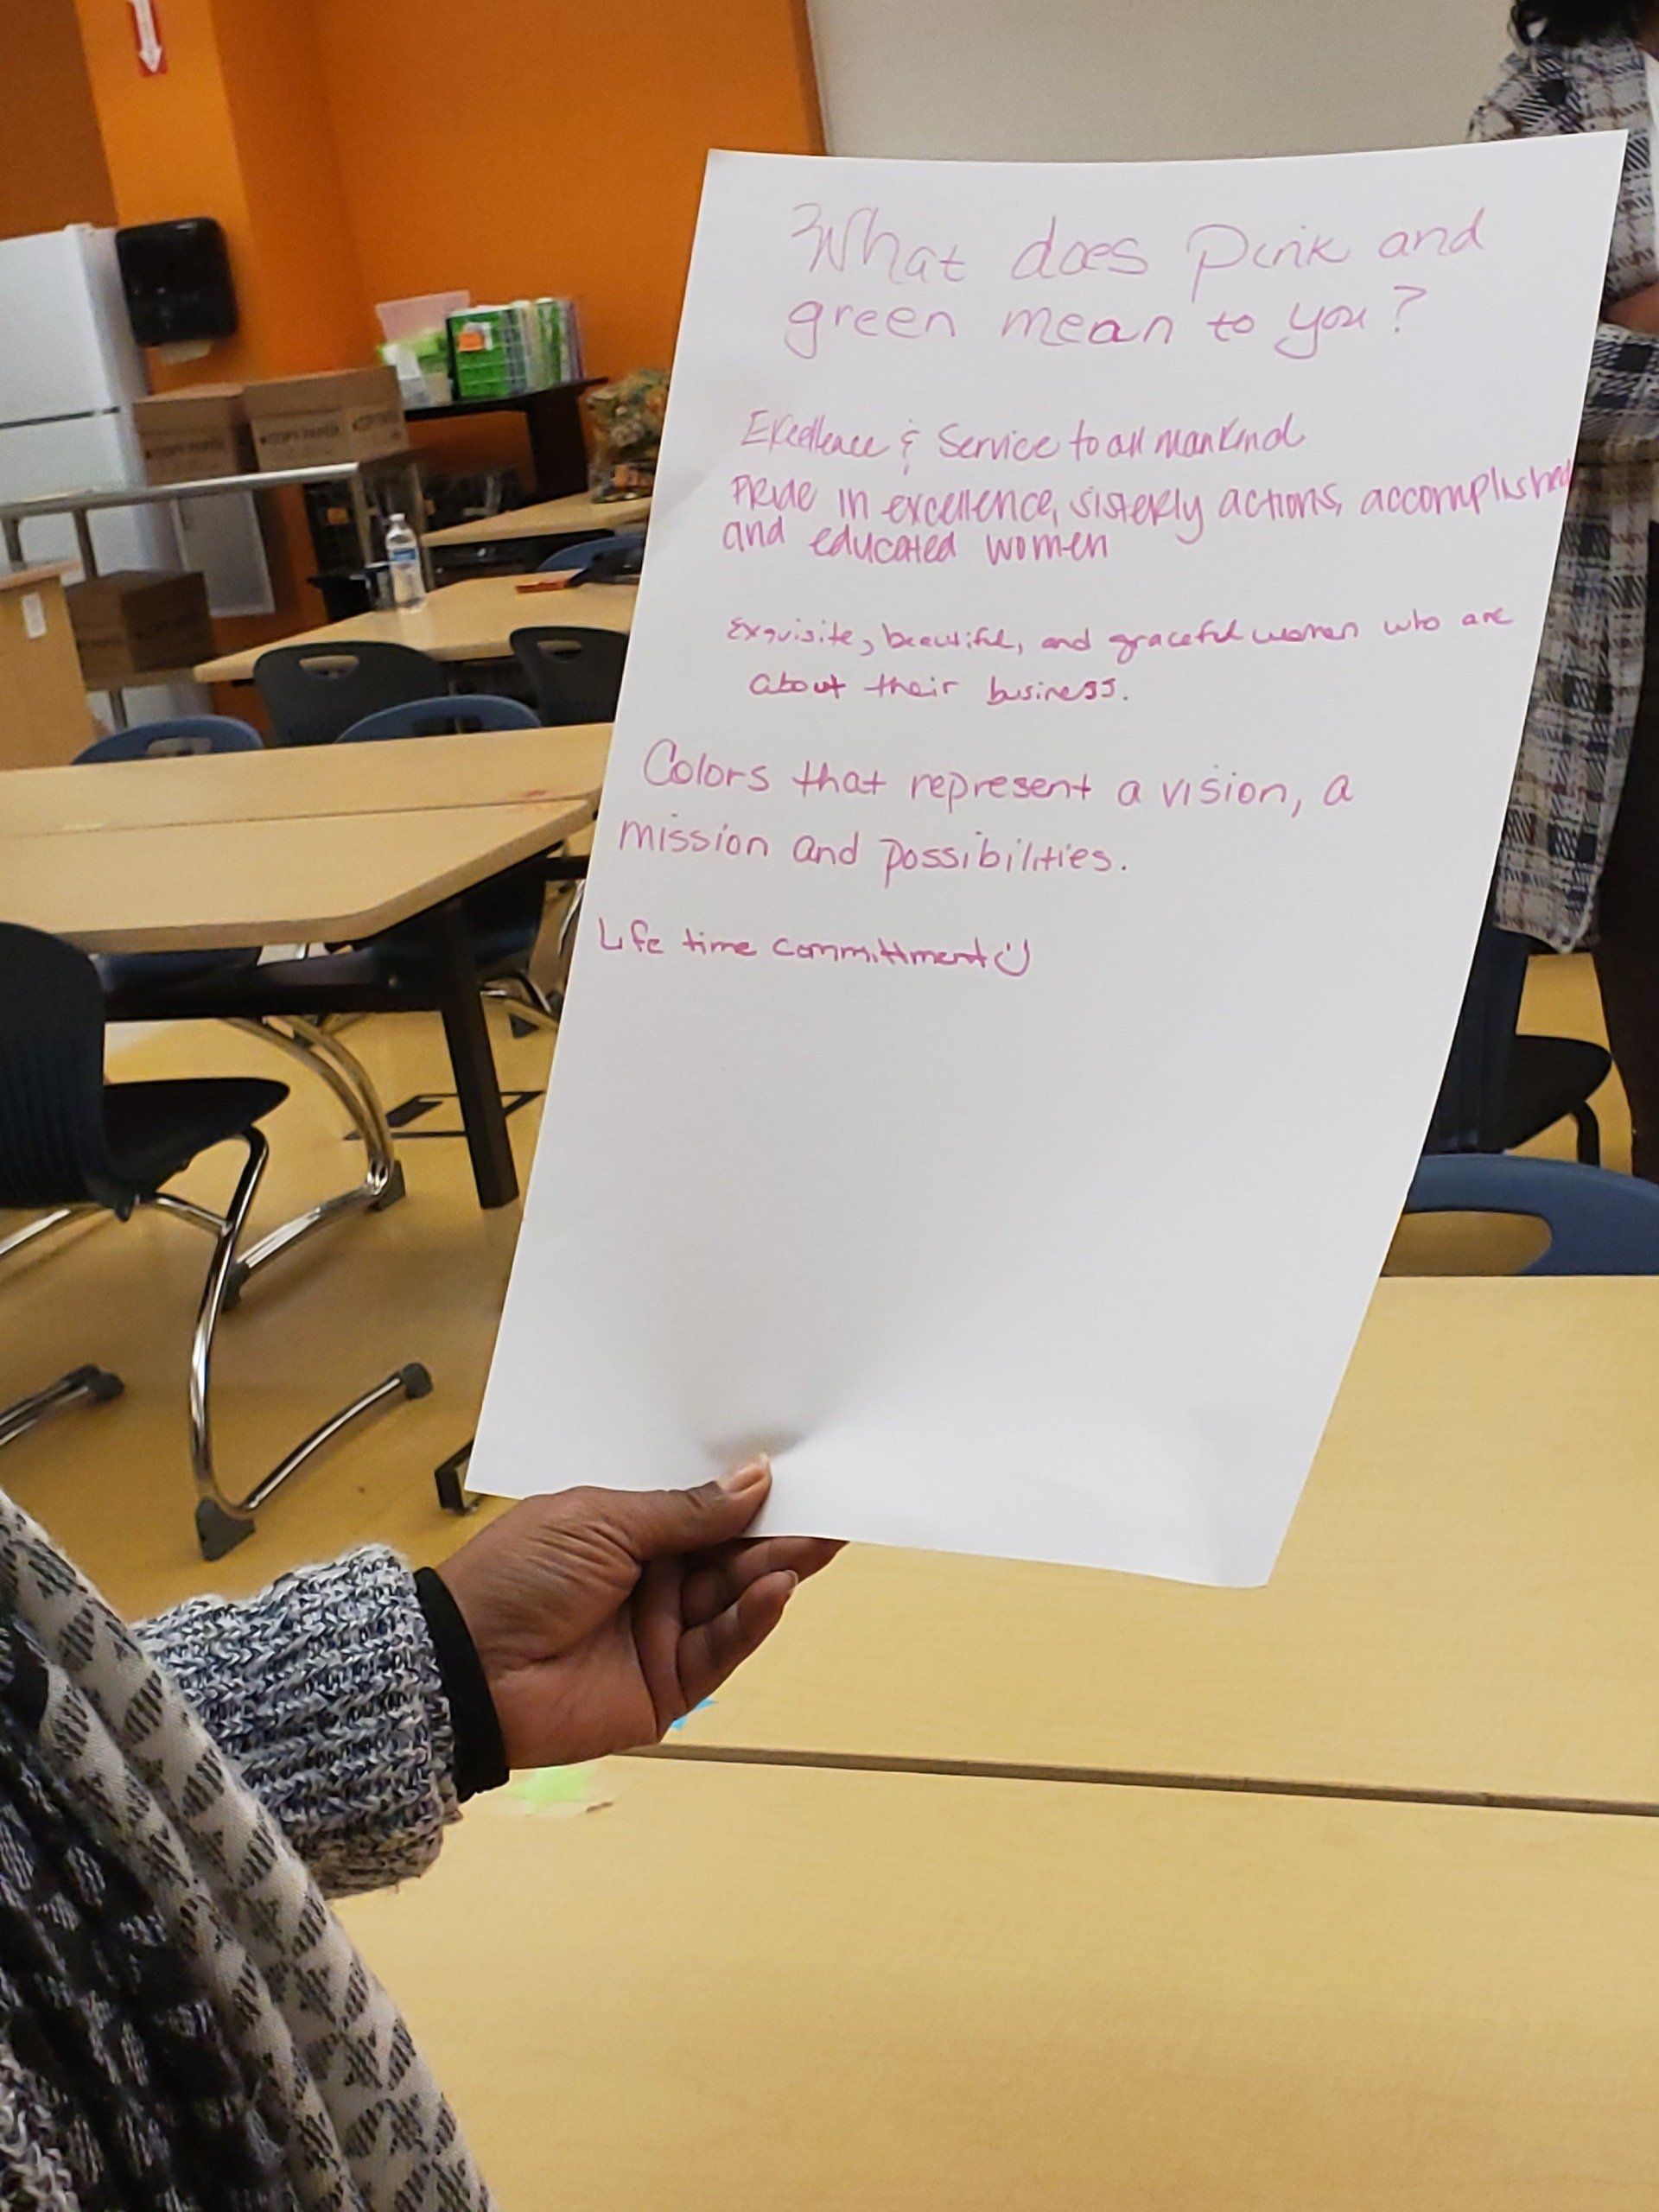 What does pink and
green mean to you?
Excellence & Service to all mankind
Pride in excellence, sisterly actions, accomplished
and educated women
Exquisite, beautiful, and graceful women who are
about their business.
Colors that represent a vision, a
mission and possibilities.
Life time committment :)